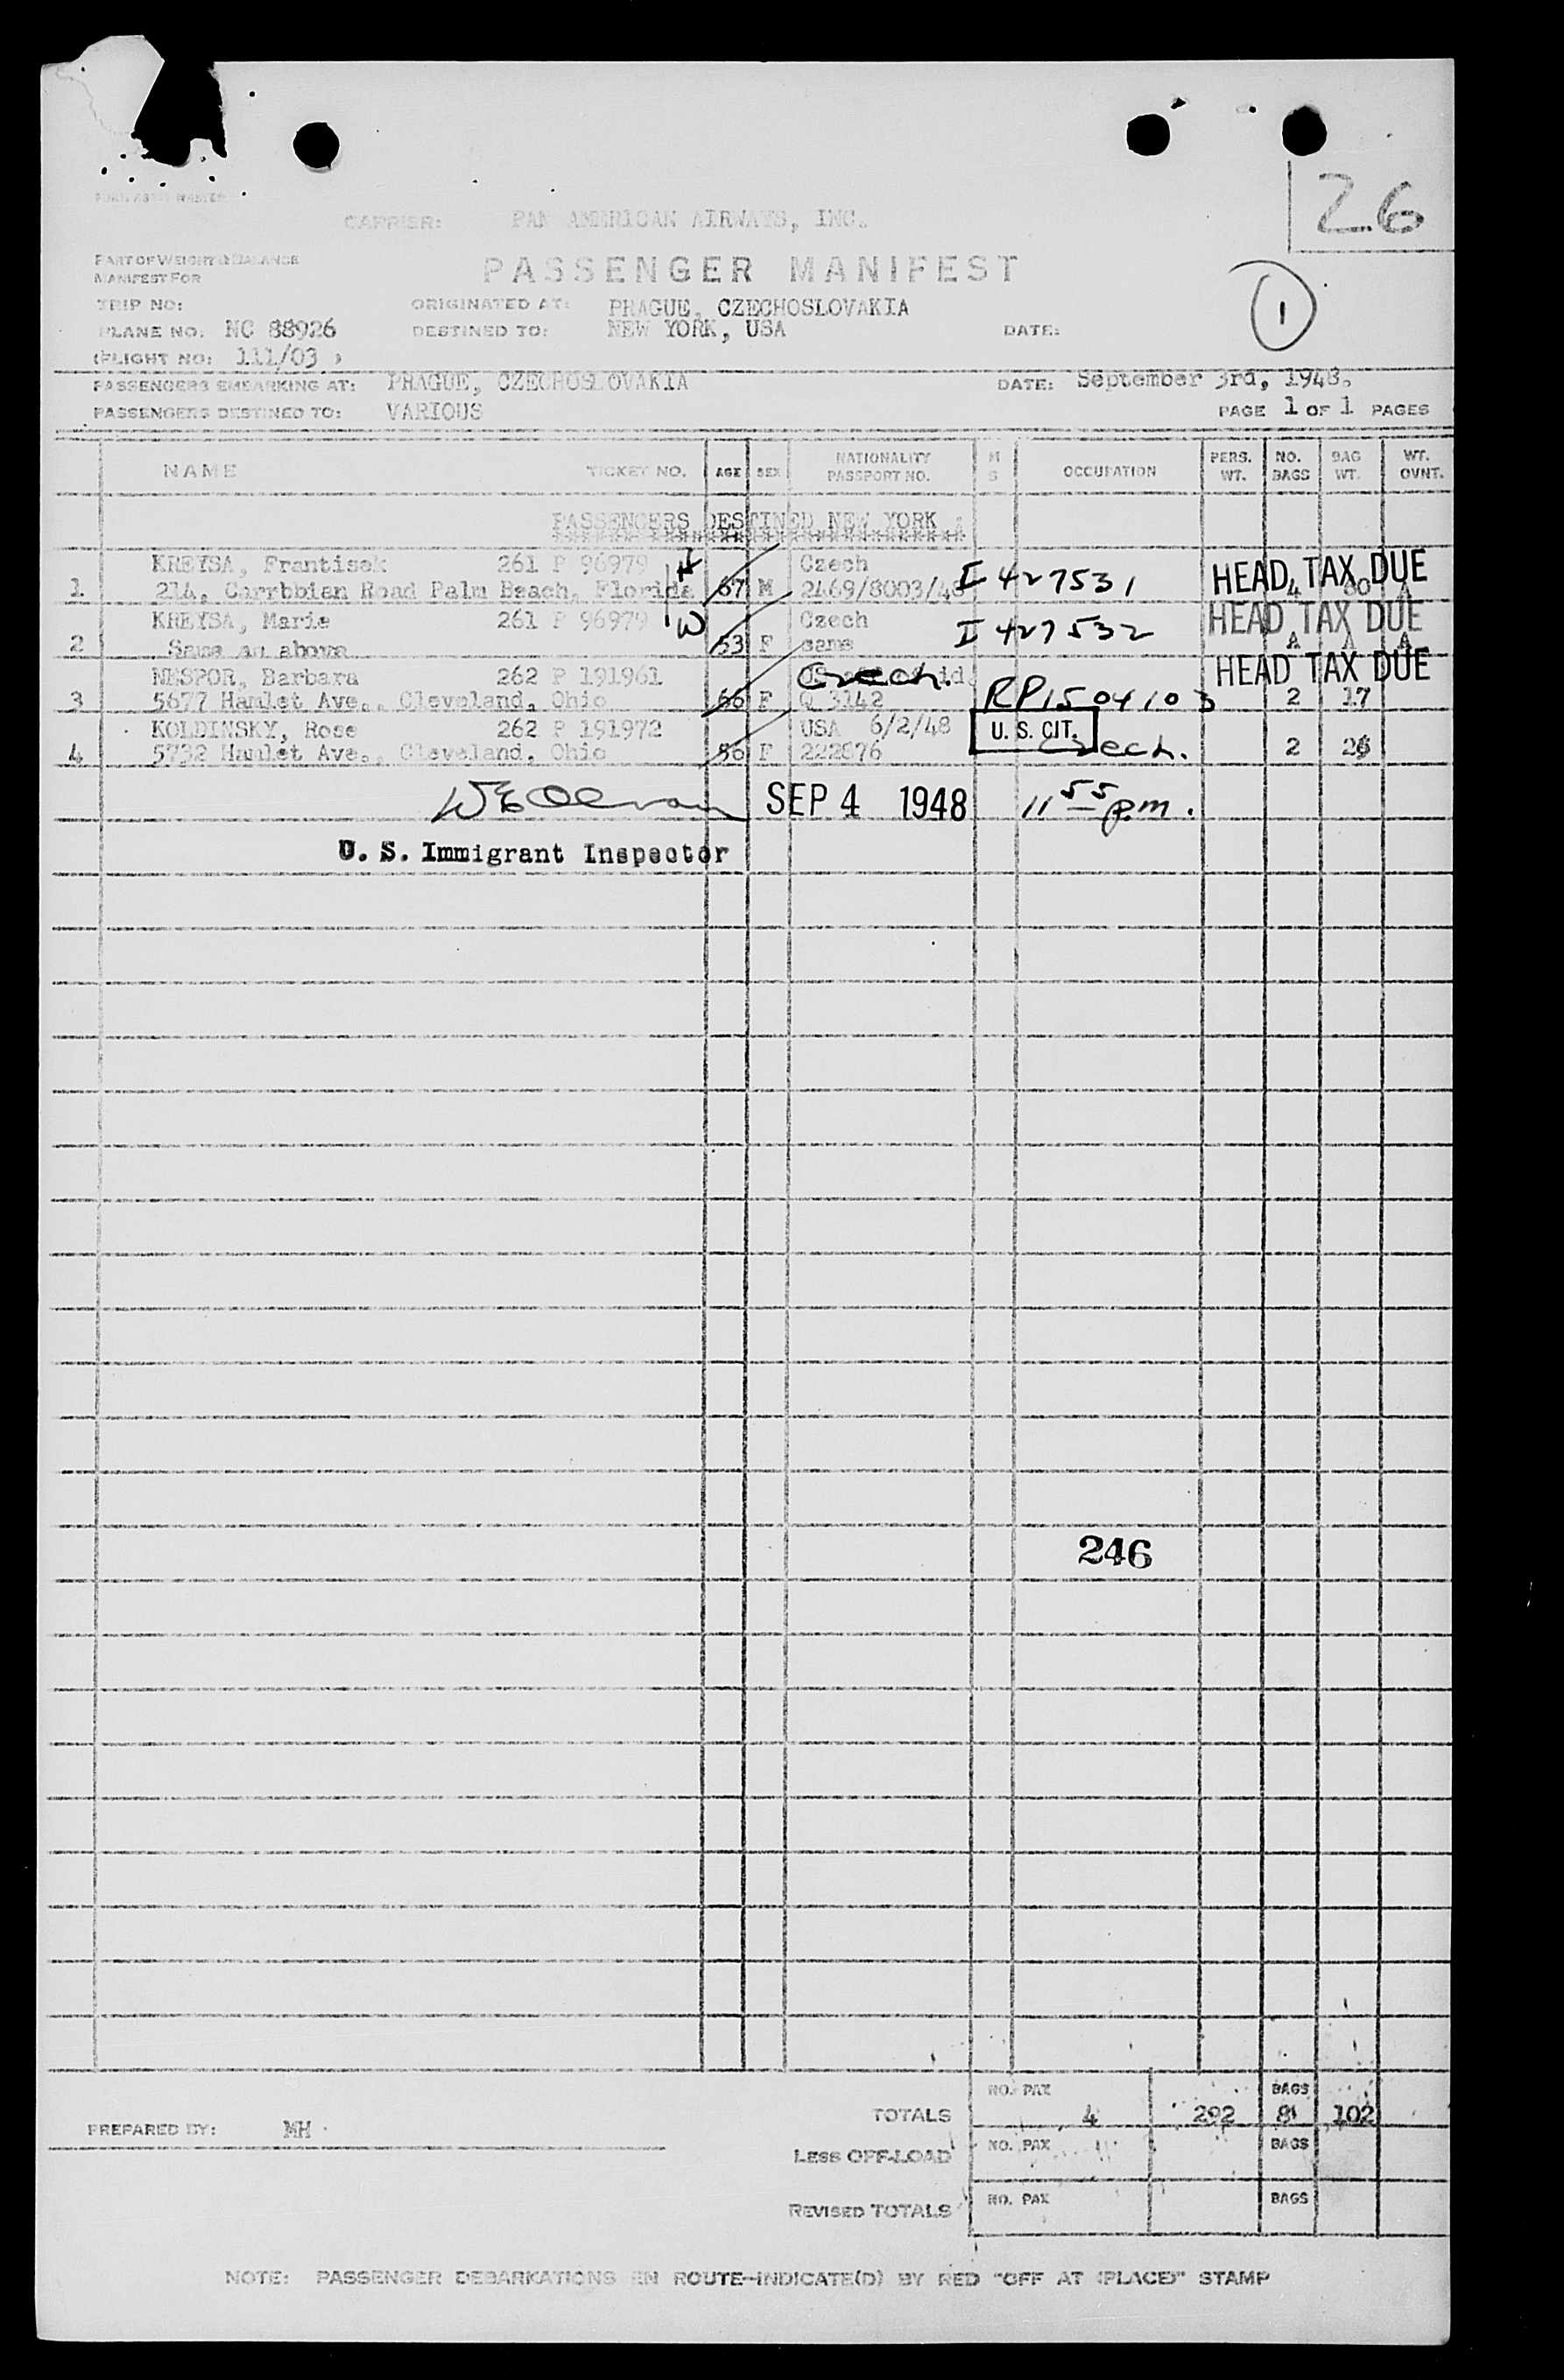 26
CARRIER: PAN AMERICAN AIRWAYS, INC.
PART OF WEIGHT & BALANCE
MANIFEST FOR
PASSENGER MANIFEST
1
TRIP NO: ORIGINATED AT: PRAGUE, CZECHOSLOVAKIA
PLANE NO. NC 88926 DESTINED TO: NEW YORK, USA DATE:
(FLIGHT NO: 111/03 )
PASSENGERS EMBARKING AT: PRAGUE, CZECHOSLOVAKIA DATE: September 3rd, 1948.
PASSENGERS DESTINED TO: VARIOUS PAGE 1 OF 1 PAGES
NAME TICKET NO. AGE SEX NATIONALITY PASSPORT NO. M S OCCUPATION PERS. WT. NO. BAGS BAG WT. WT. OVNT.
PASSENGERS DESTINED NEW YORK :
KREYSA, Frantisek 261 P 96979 H Czech
1 214, Carrbbian Road Palm Beach, Florida 67 M 2469/8003/48 I 427531 HEAD TAX DUE 4 80 A
KREYSA, Marie 261 P 96979 W Czech HEAD TAX DUE
2 Same as above 53 F same I 427532 A A A
NESPOR, Barbara 262 P 191961 Czech. HEAD TAX DUE
3 5677 Hamlet Ave., Cleveland, Ohio 66 F Q 3142 RP1504103 2 17
KOLDINSKY, Rose 262 P 191972 USA 6/2/48 U. S. CIT.
4 5732 Hamlet Ave., Cleveland, Ohio 56 F 222876 Czech. 2
SEP 4 1948 11 55 p.m.
U. S. Immigrant Inspector
246
NO. PAX BAGS
TOTALS 4 292 8 102
PREPARED BY: MH
LESS OFF-LOAD NO. PAX BAGS
REVISED TOTALS NO. PAX BAGS
NOTE: PASSENGER DEBARKATIONS EN ROUTE—INDICATE(D) BY RED "OFF AT (PLACE)" STAMP